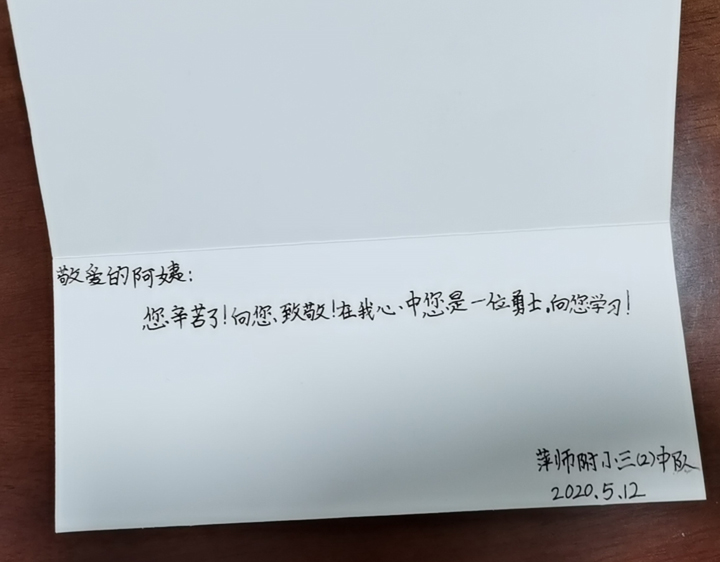 敬爱的阿姨：
您辛苦了！向您致敬！在我心中您是一位勇士，向您学习！
萍师附小三(2)中队
2020.5.12